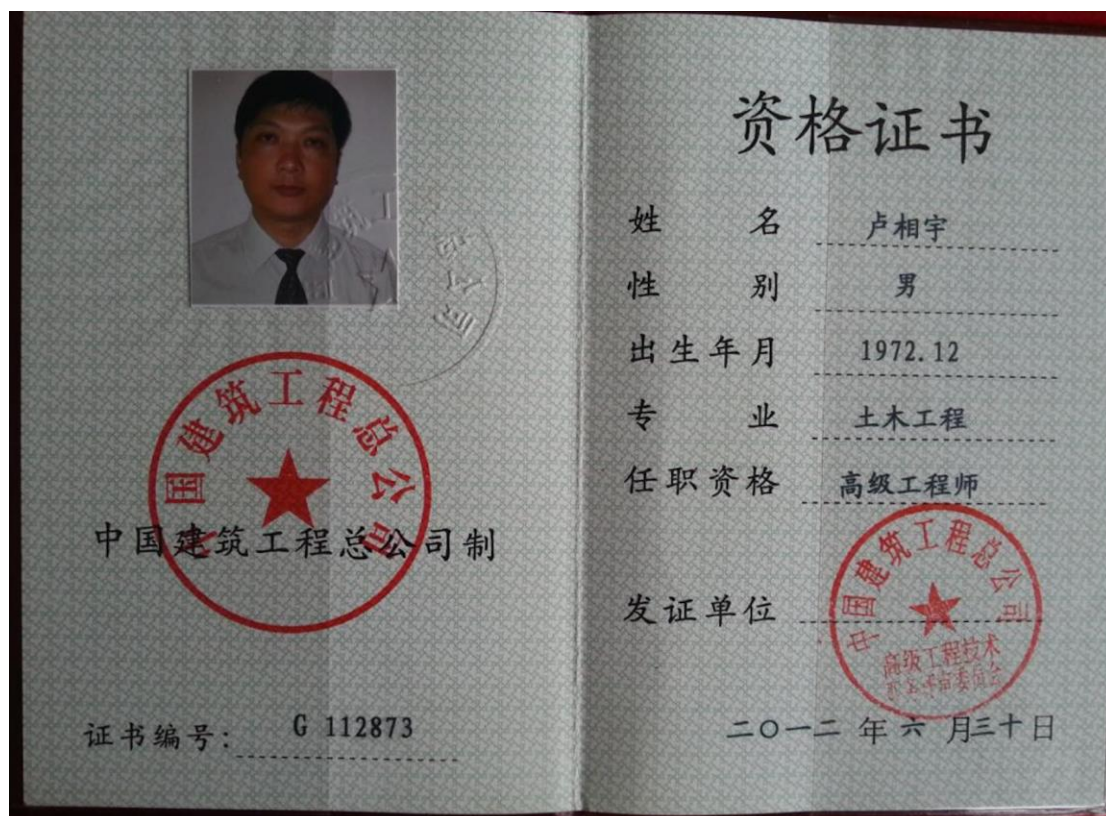 中国建筑工程总公司
中国建筑工程总公司制
证书编号: G 112873
资格证书
姓名 卢相宇
性别 男
出生年月 1972.12
专业 土木工程
任职资格 高级工程师
发证单位
中国建筑工程总公司
高级工程技术
二〇一二年六月三十日